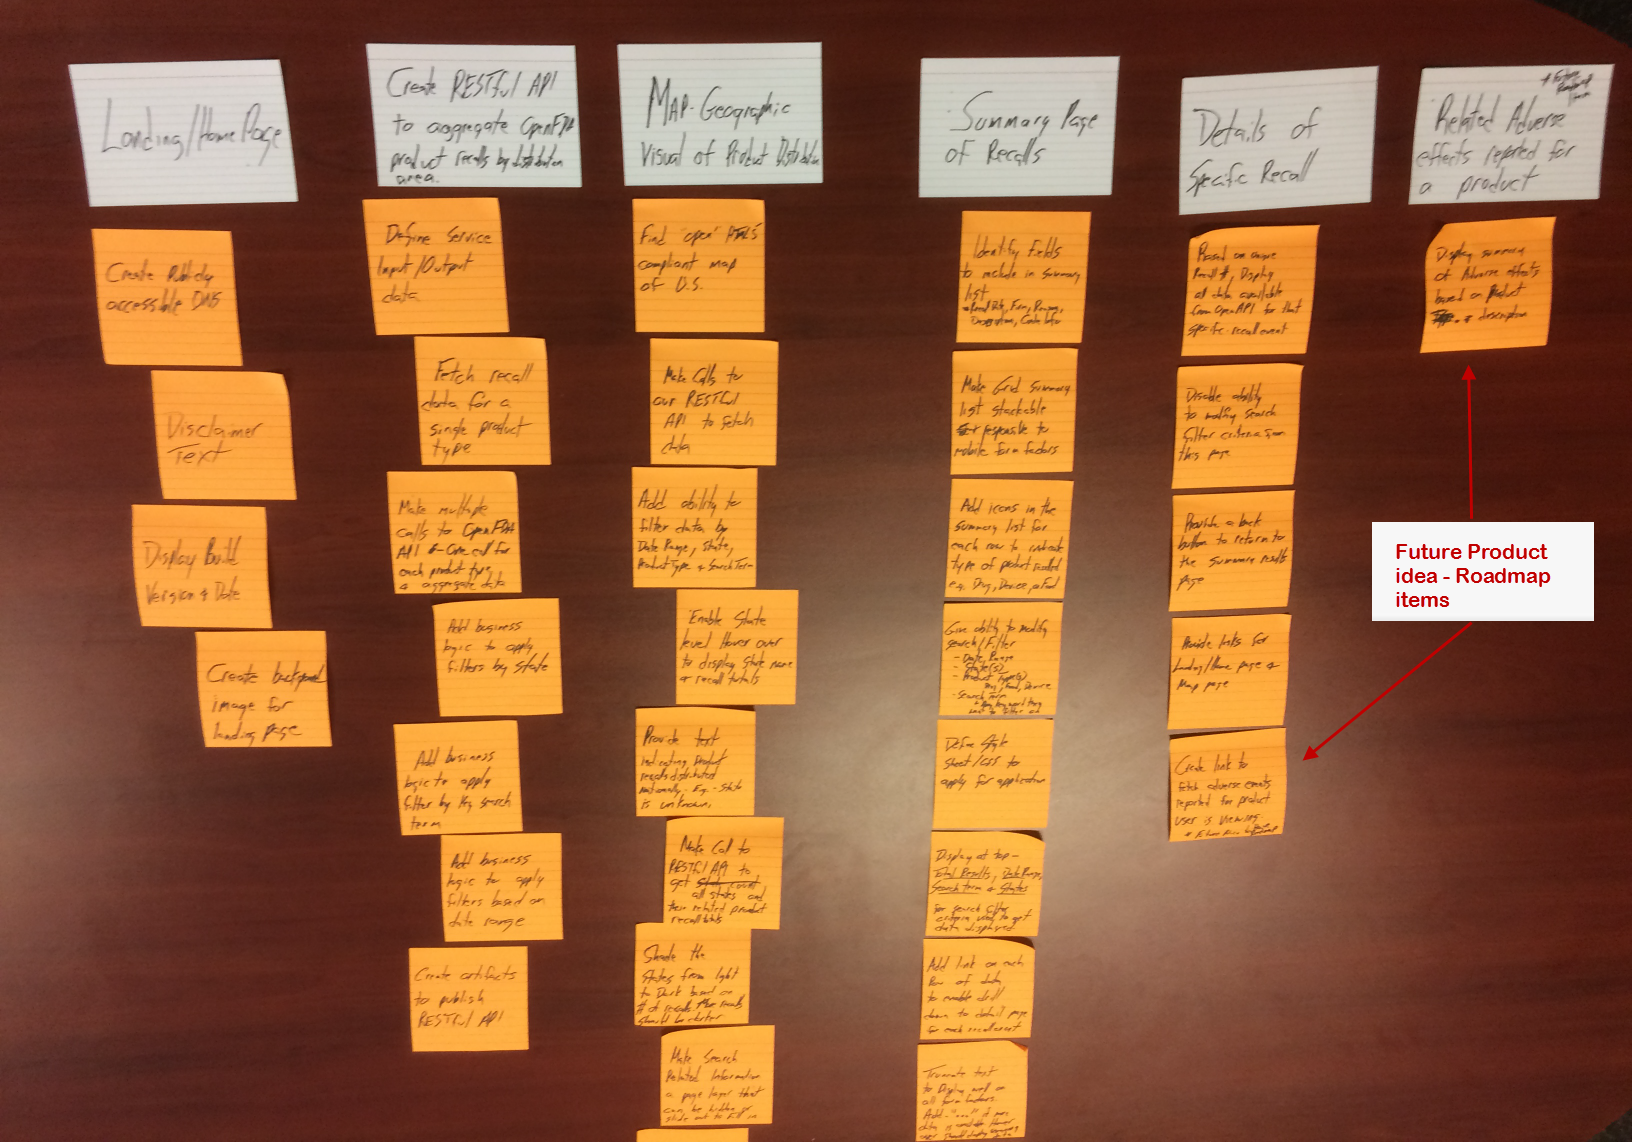 Landing/Home Page
Create Publicly
accessible DNS
Disclaimer
Text
Display Build
Version & Date
Create background
image for
landing page
Create RESTful API
to aggregate OpenFDA
product recalls by distribution
area.
Define Service
Input/Output
data
Fetch recall
data for a
single product
type
Make multiple
calls to OpenFDA
API - One call for
each product type,
& aggregate data
Add business
logic to apply
filters by State
Add business
logic to apply
filter by Key search
term
Add business
logic to apply
filters based on
date range
Create artifacts
to publish
RESTful API
MAP-Geographic
Visual of Product Distribution
Find "open"
compliant map
of U.S.
Make Calls to
our RESTful
API to fetch
data
Add ability to
filter data by
Date Range, State,
Product Type & Search Term
Enable State
level Hover over
to display State name
& recall totals
Provide text
indicating product
recalls distributed
nationally, E.g. - State
is unknown.
Make Call to
RESTful API to
get State count
all states and
their related product
recall totals
Shade the
States from light
to Dark based on
# of recalls. More recalls
should be darker
Make Search
Related Information
a page layer that
can be hidden or
slide out to fill in
Summary Page
of Recalls
Identify Fields
to include in Summary
list
Recall Date, Firm, Reason,
Description, Code Info
Make Grid Summary
list stackable
responsible to
mobile form factors
Add icons in the
summary list for
each row to indicate
type of product recalled
e.g. Drug, Device, or Food
Give ability to modify
search/Filter
- Date Range
- State(s)
- Product Type(s)
Drug, Food, Device
- Search Term
* Any keyword they
want to filter on
Define Style
Sheet/CSS to
apply for application
Display at top -
Total Results, Date Range,
Search term & States
for search filter
criteria used to get
data displayed
Add link on each
Row of data
to enable drill
down to detail page
for each recall event
Truncate text
to Display well on
all form factors.
Add "..." if more
data is available. Hover
Details of
Specific Recall
Based on unique
Recall #, Display
all data available
from OpenAPI for that
specific recall event
Disable ability
to modify search
filter criteria from
this page
Provide a back
button to return to
the Summary results
page
Provide links for
Landing/Home page &
Map page
Create link to
fetch adverse events
reported for product
user is viewing
* Future
Roadmap
Item
Related Adverse
effects reported for
a product
Display summary
of Adverse effects
based on Product
& description
Future Product
idea - Roadmap
items